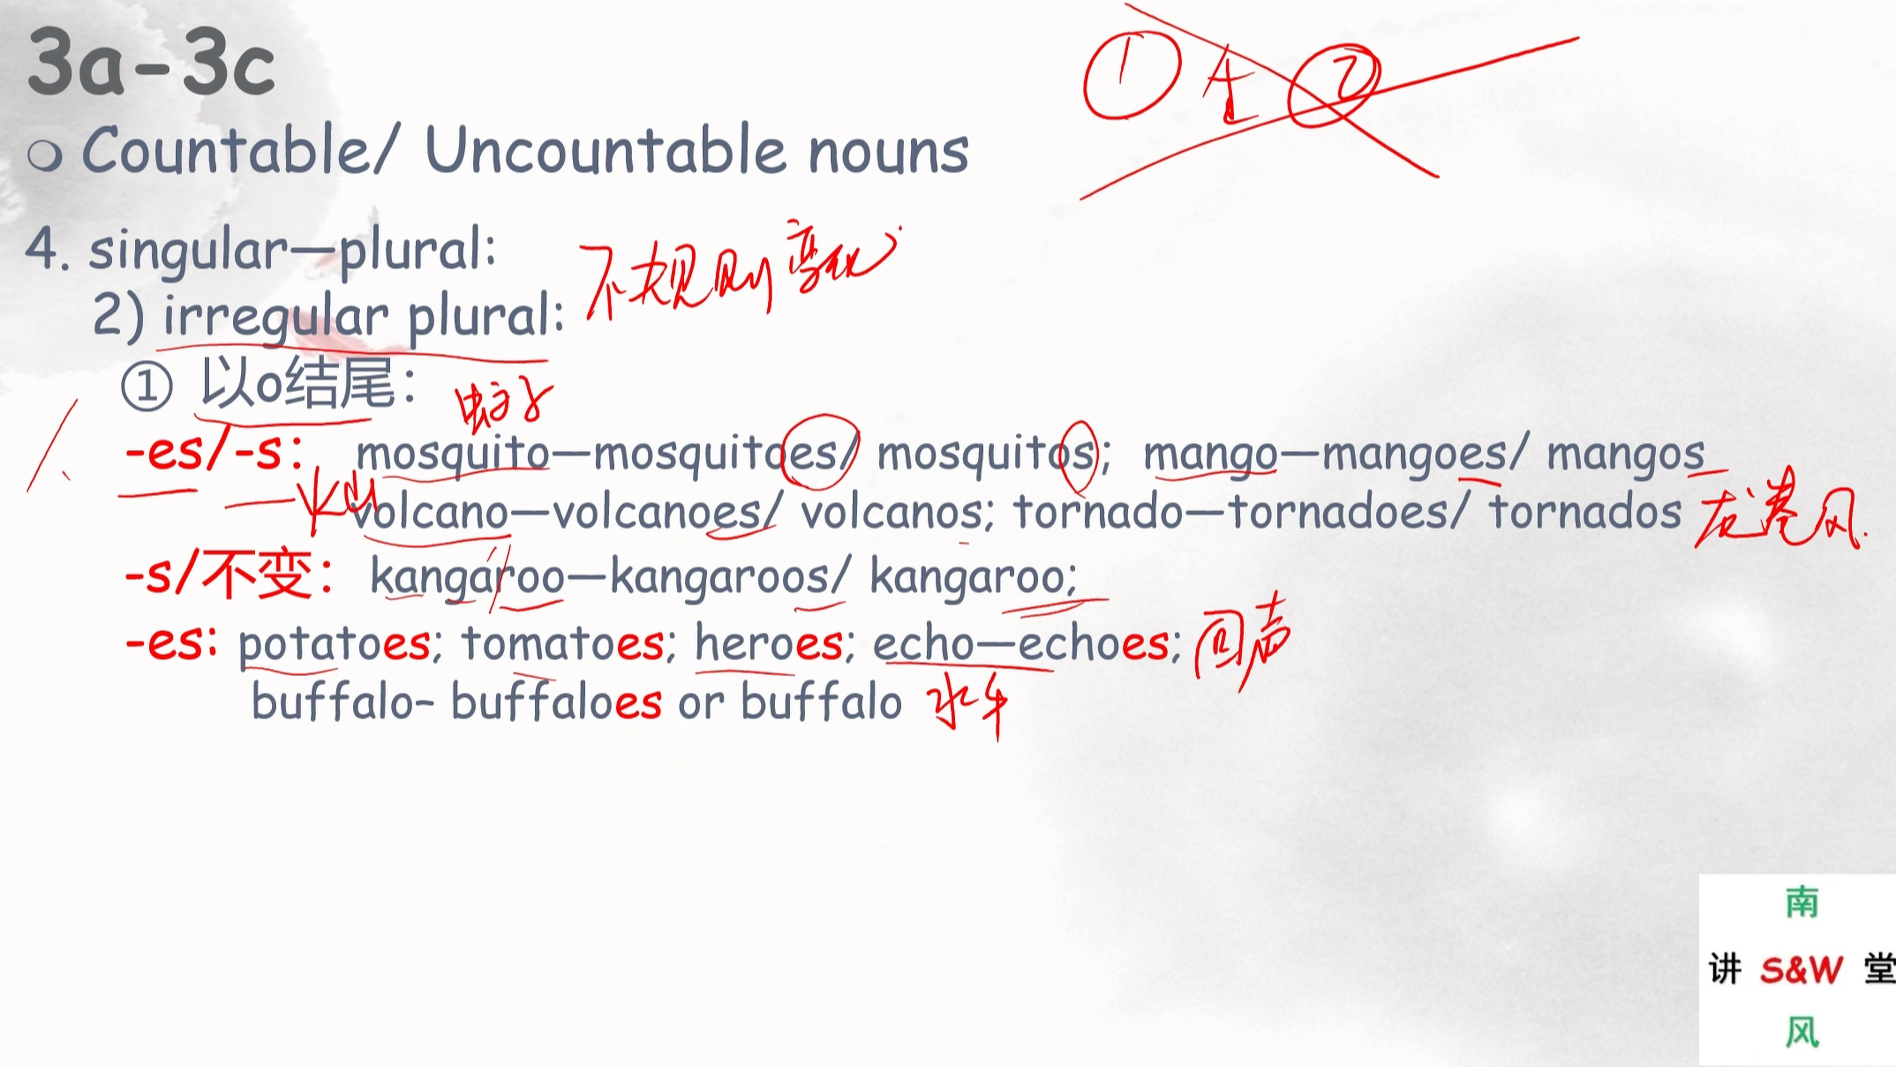 3a-3c
① ②
Countable/ Uncountable nouns
4. singular—plural:
不规则变化
2) irregular plural:
① 以o结尾：
蚊子
-es/-s： mosquito—mosquitoes/ mosquitos; mango—mangoes/ mangos
火山 volcano—volcanoes/ volcanos; tornado—tornadoes/ tornados 龙卷风
-s/不变： kangaroo—kangaroos/ kangaroo;
-es: potatoes; tomatoes; heroes; echo—echoes; 回声
buffalo- buffaloes or buffalo 水牛
南
讲 S&W 堂
风